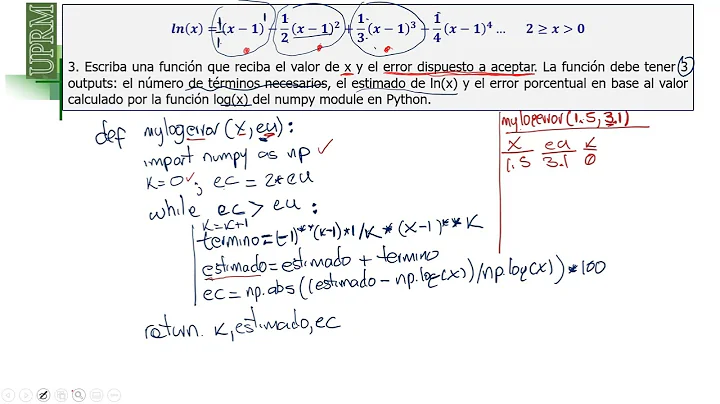 UPRM
ln(x) = 1/1 (x − 1)¹ − 1/2 (x − 1)² + 1/3 (x − 1)³ − 1/4 (x − 1)⁴ ...   2 ≥ x > 0
3. Escriba una función que reciba el valor de x y el error dispuesto a aceptar. La función debe tener 3
outputs: el número de términos necesarios, el estimado de ln(x) y el error porcentual en base al valor
calculado por la función log(x) del numpy module en Python.
def mylogerror(x, eu):
import numpy as np
k=0; ec = 2*eu
while ec > eu:
k=k+1
termino=(-1)**(k-1)*1/k*(x-1)**k
estimado=estimado + termino
ec = np.abs((estimado - np.log(x))/np.log(x))*100
return k, estimado, ec
mylogerror(1.5, 3.1)
x eu k
1.5 3.1 0